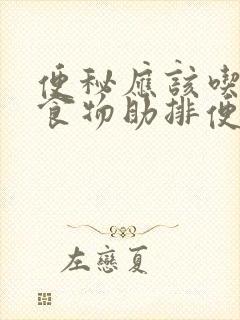 便秘應該喫
食物助排便
左戀夏